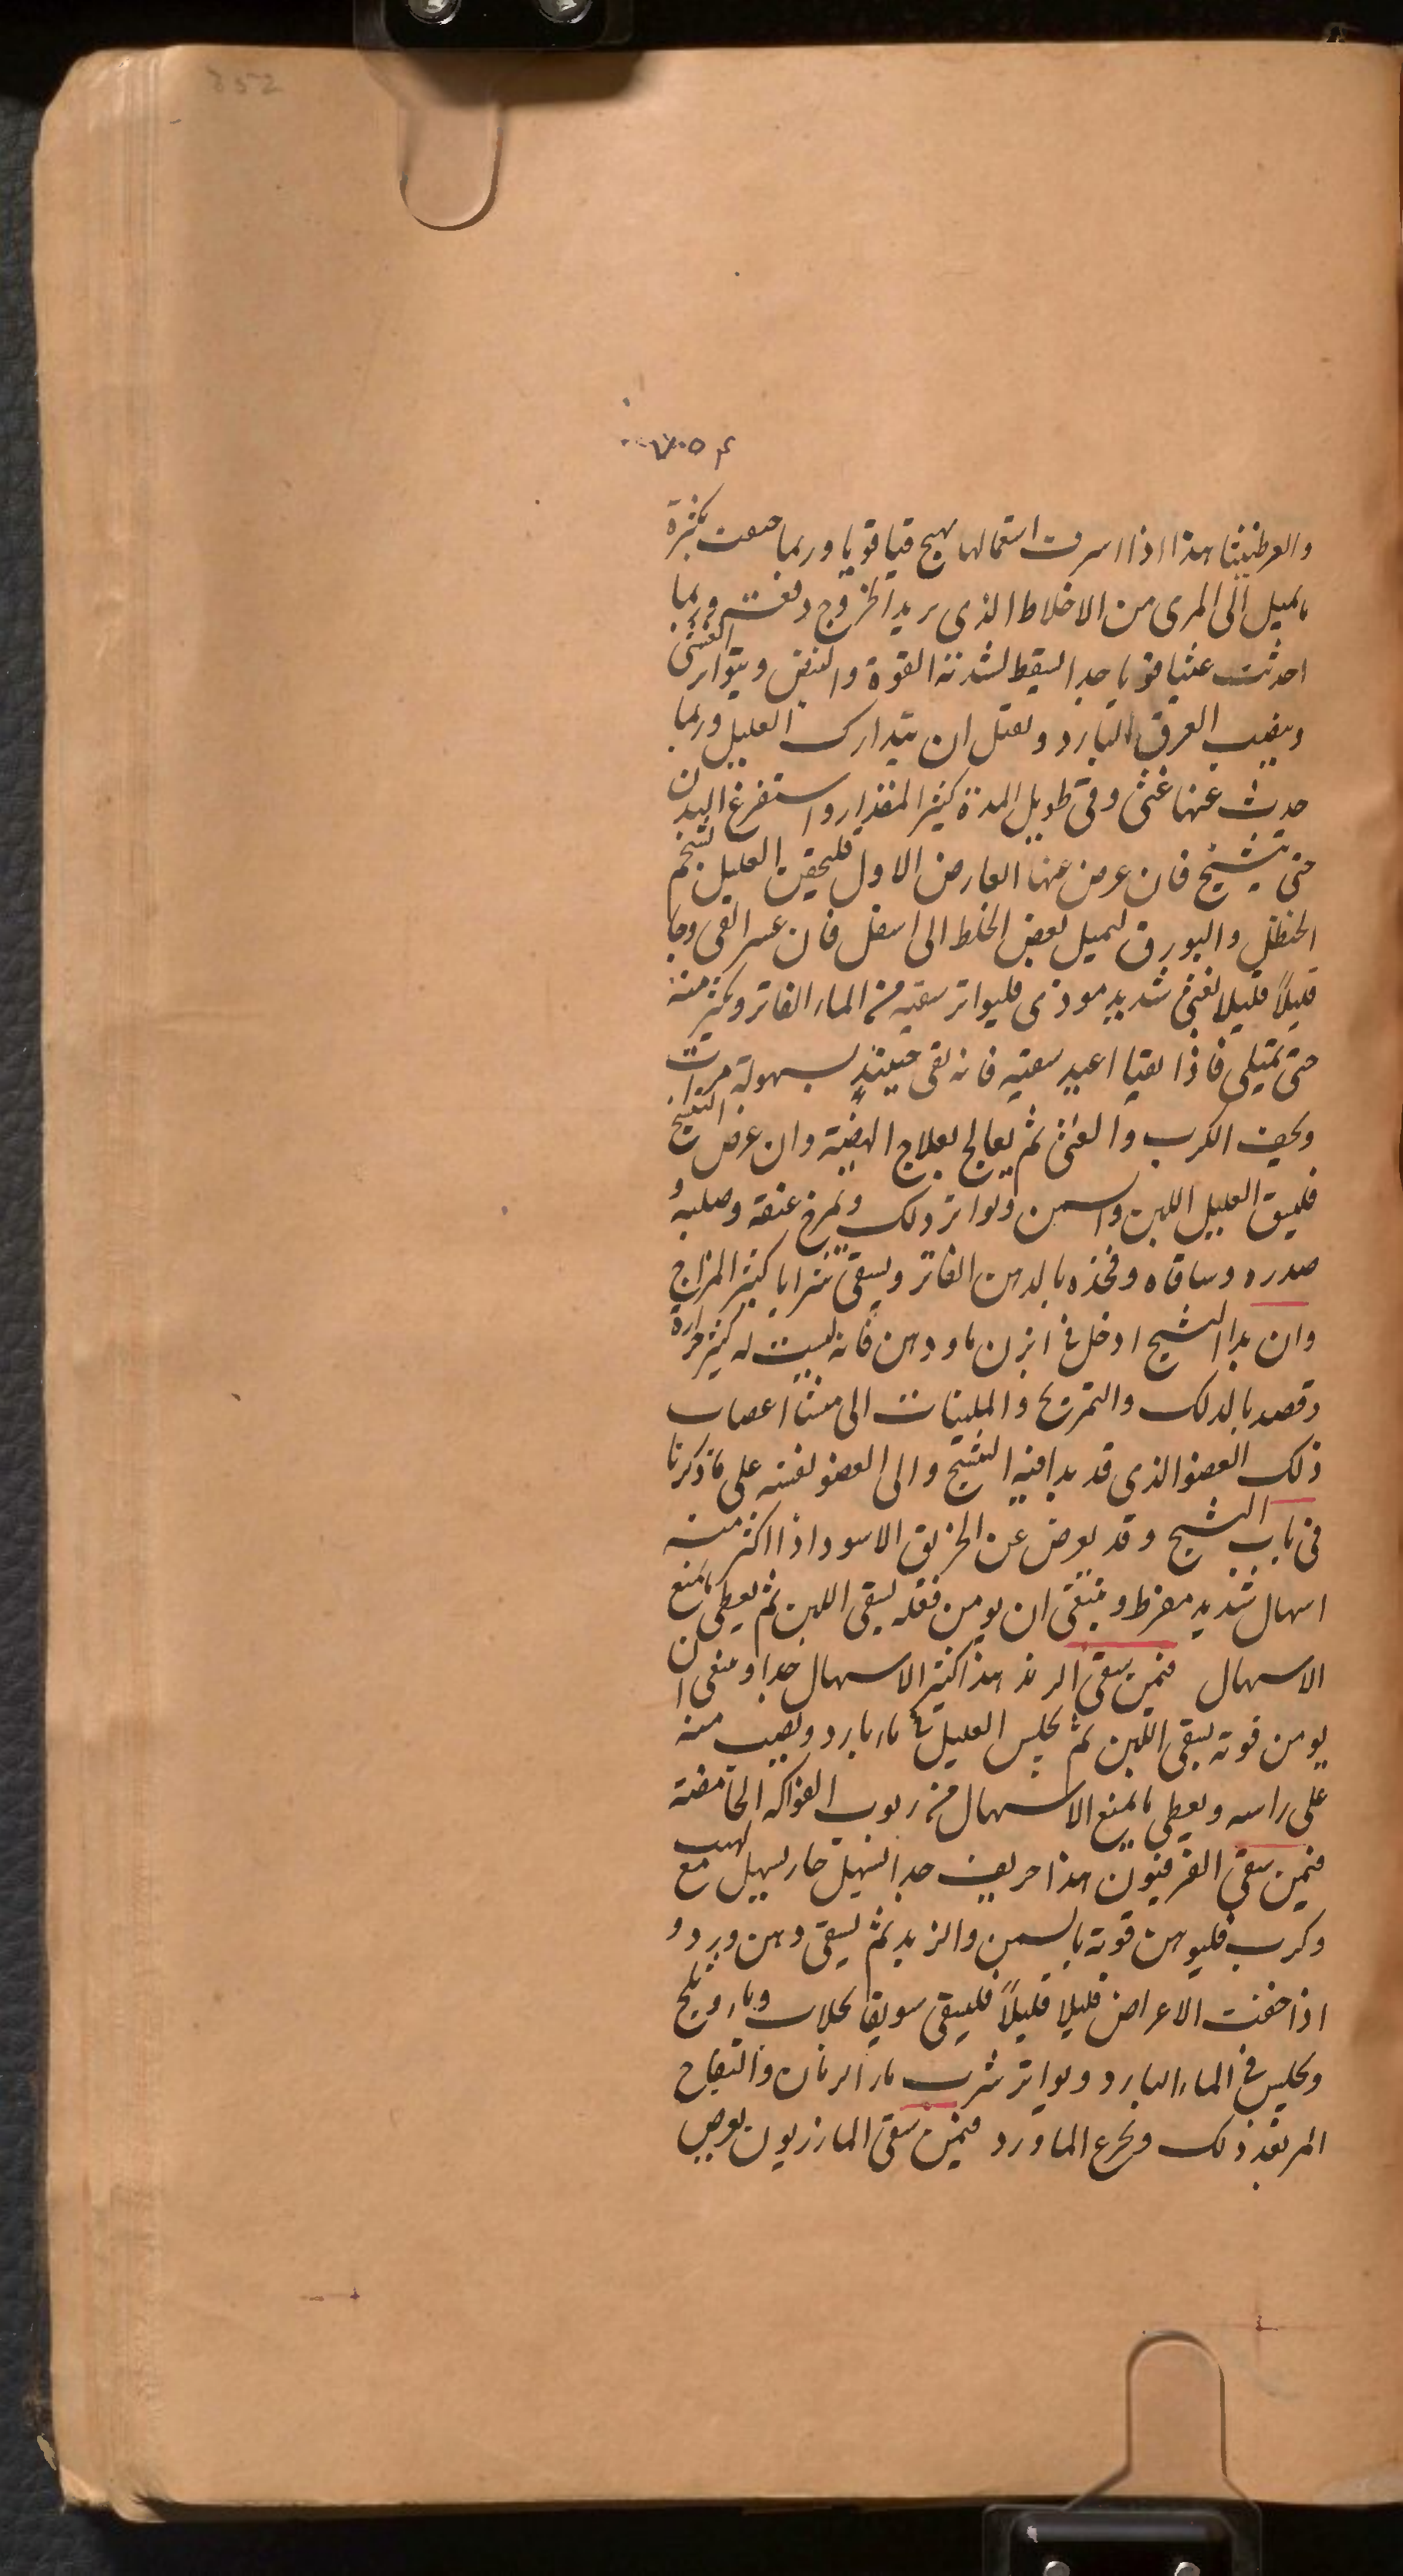 852
والعرطنيثا هذا اذا اسرفت استعمالها يهيج قيا قويا وربما خنقت بكثرة
مايميل الى المرى من الاخلاط الذى يريد الخروج دفعت وربما
احدثت غثيا قويا جدا ليقط لشدته القوة والنفض ويتواتر الغشى
ويصيب العرق البارد وتقتل ان يتدارك العليل وربما
حدث عنها غثى وقى طويل المدة كثير المقدار واستفرغ البدن
حتى يتشنج فان عرض عنها العارض الاول فليحقن العليل بشحم
الحنظل والبورق ليميل بعض الخلط الى اسفل فان عسر القى وجا
قليلاً قليلا بغثى شديد موذى فليواتر سقيه من الماء الفاتر ويكثر منه
حتى يمتلى فاذا تقيا اعيد سقيه فانه يقى حينئذٍ بسهولة مرات
ويخف الكرب والغثى ثم يعالج بعلاج الهيضة وان عرض التشنج
فليسق العليل اللبن والسمن ويواتر ذلك ويمرخ عنقه وصلبه و
صدره وساقاه وفخذه بالدهن الفاتر ويسقى شرابا كثير المزاج
وان بدا التشنج ادخل فى ابزن ماء ودهن فانه ليست له كثير حرارة
وقصد بالدلك والتمريخ والملينات الى منشا اعصاب
ذلك العضو الذى قد بدا فيه التشنج والى العضو نفسه على ما ذكرنا
فى باب التشنج وقد يعرض عن الخربق الاسود اذا اكثر منه
اسهال شديد مفرط وينبغى ان يومن فعله بسقى اللبن ثم يعطى ما يمنع
الاسهال فيمن سقى الرند هذا كثير الاسهال جدا وينبغى ان
يومن قوته بسقى اللبن ثم يجلس العليل فى ماء بارد ويصب منه
على راسه ويعطى ما يمنع الاسهال من ربوب الفواكه الحامضة
فيمن سقى الفرفيون هذا حريف جدا اسهل حار يسهل مع لهيب
وكرب فليوهن قوته بالسمن والزبد ثم يسقى دهن ورد و
اذا خفت الاعراض قليلا قليلاً فليسقى سويقا بجلاب وماء وثلج
ويجلس فى الماء البارد ويواتر شرب ماء الرمان والتفاح
المر بعد ذلك ويجرع الماورد فيمن سقى المازريون يعرض